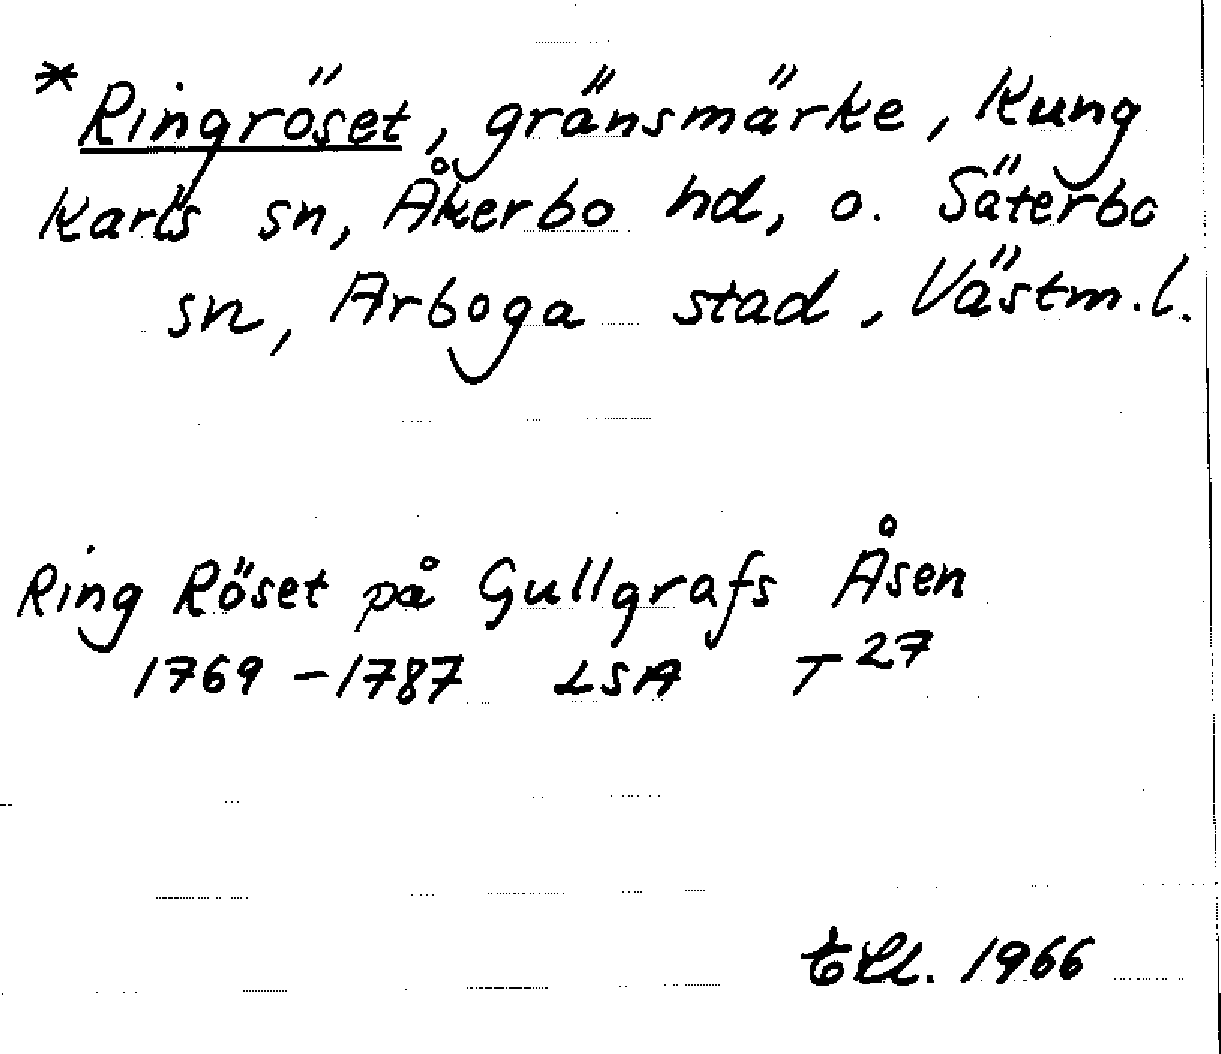 *Ringröset, gränsmärke, Kung
Karls sn, Åkerbo hd, o. Säterbo
sn, Arboga stad, Västm.l.
Ring Röset på Gullgrafs Åsen
1769-1787 LSA T 27
1966